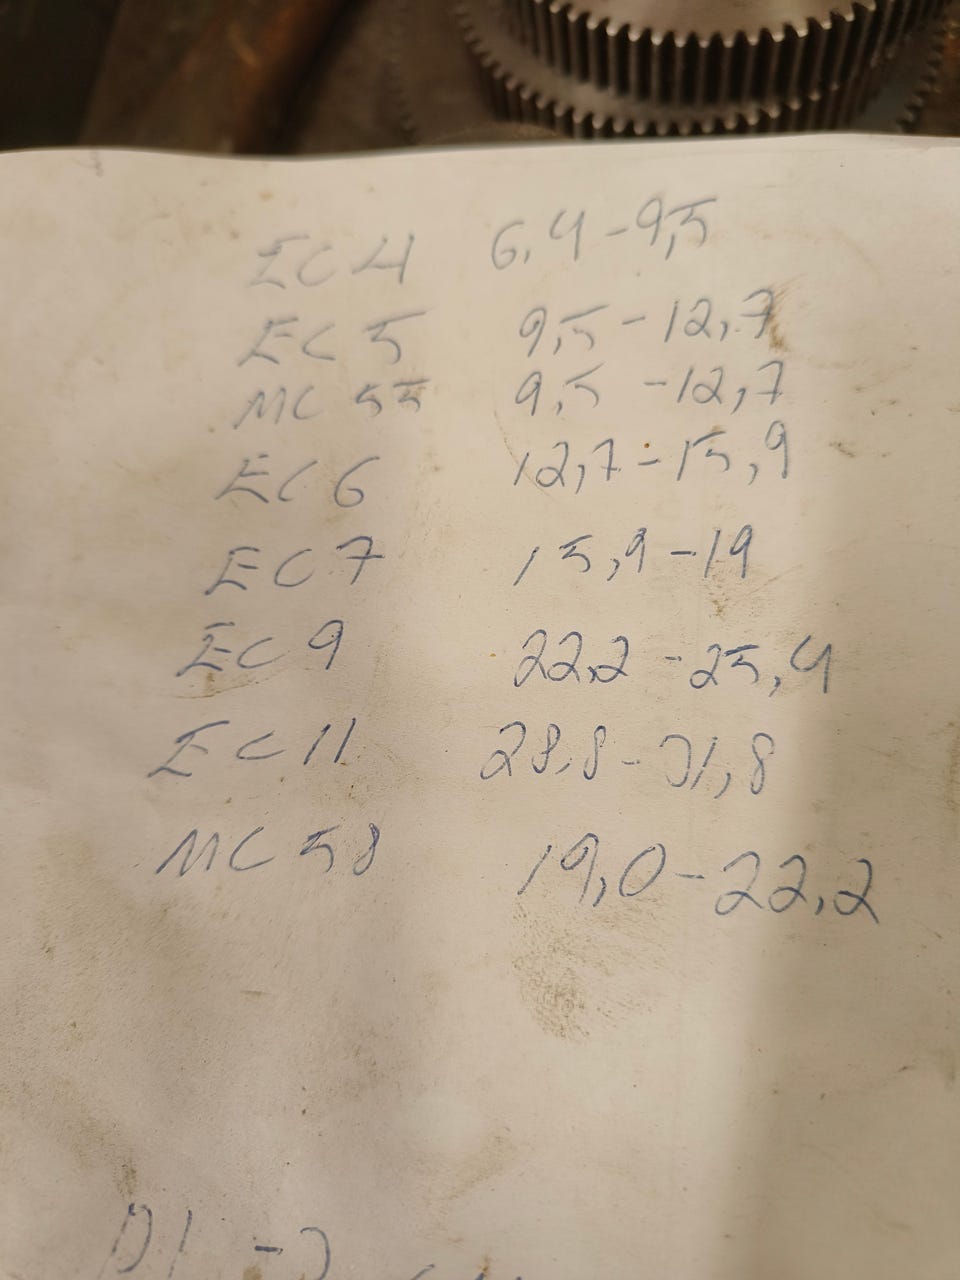 EC 4 6,4-9,5
EC 5 9,5-12,7
MC 55 9,5-12,7
EC 6 12,7-15,9
EC 7 15,9-19
EC 9 22,2-25,4
EC 11 28,8-31,8
MC 58 19,0-22,2